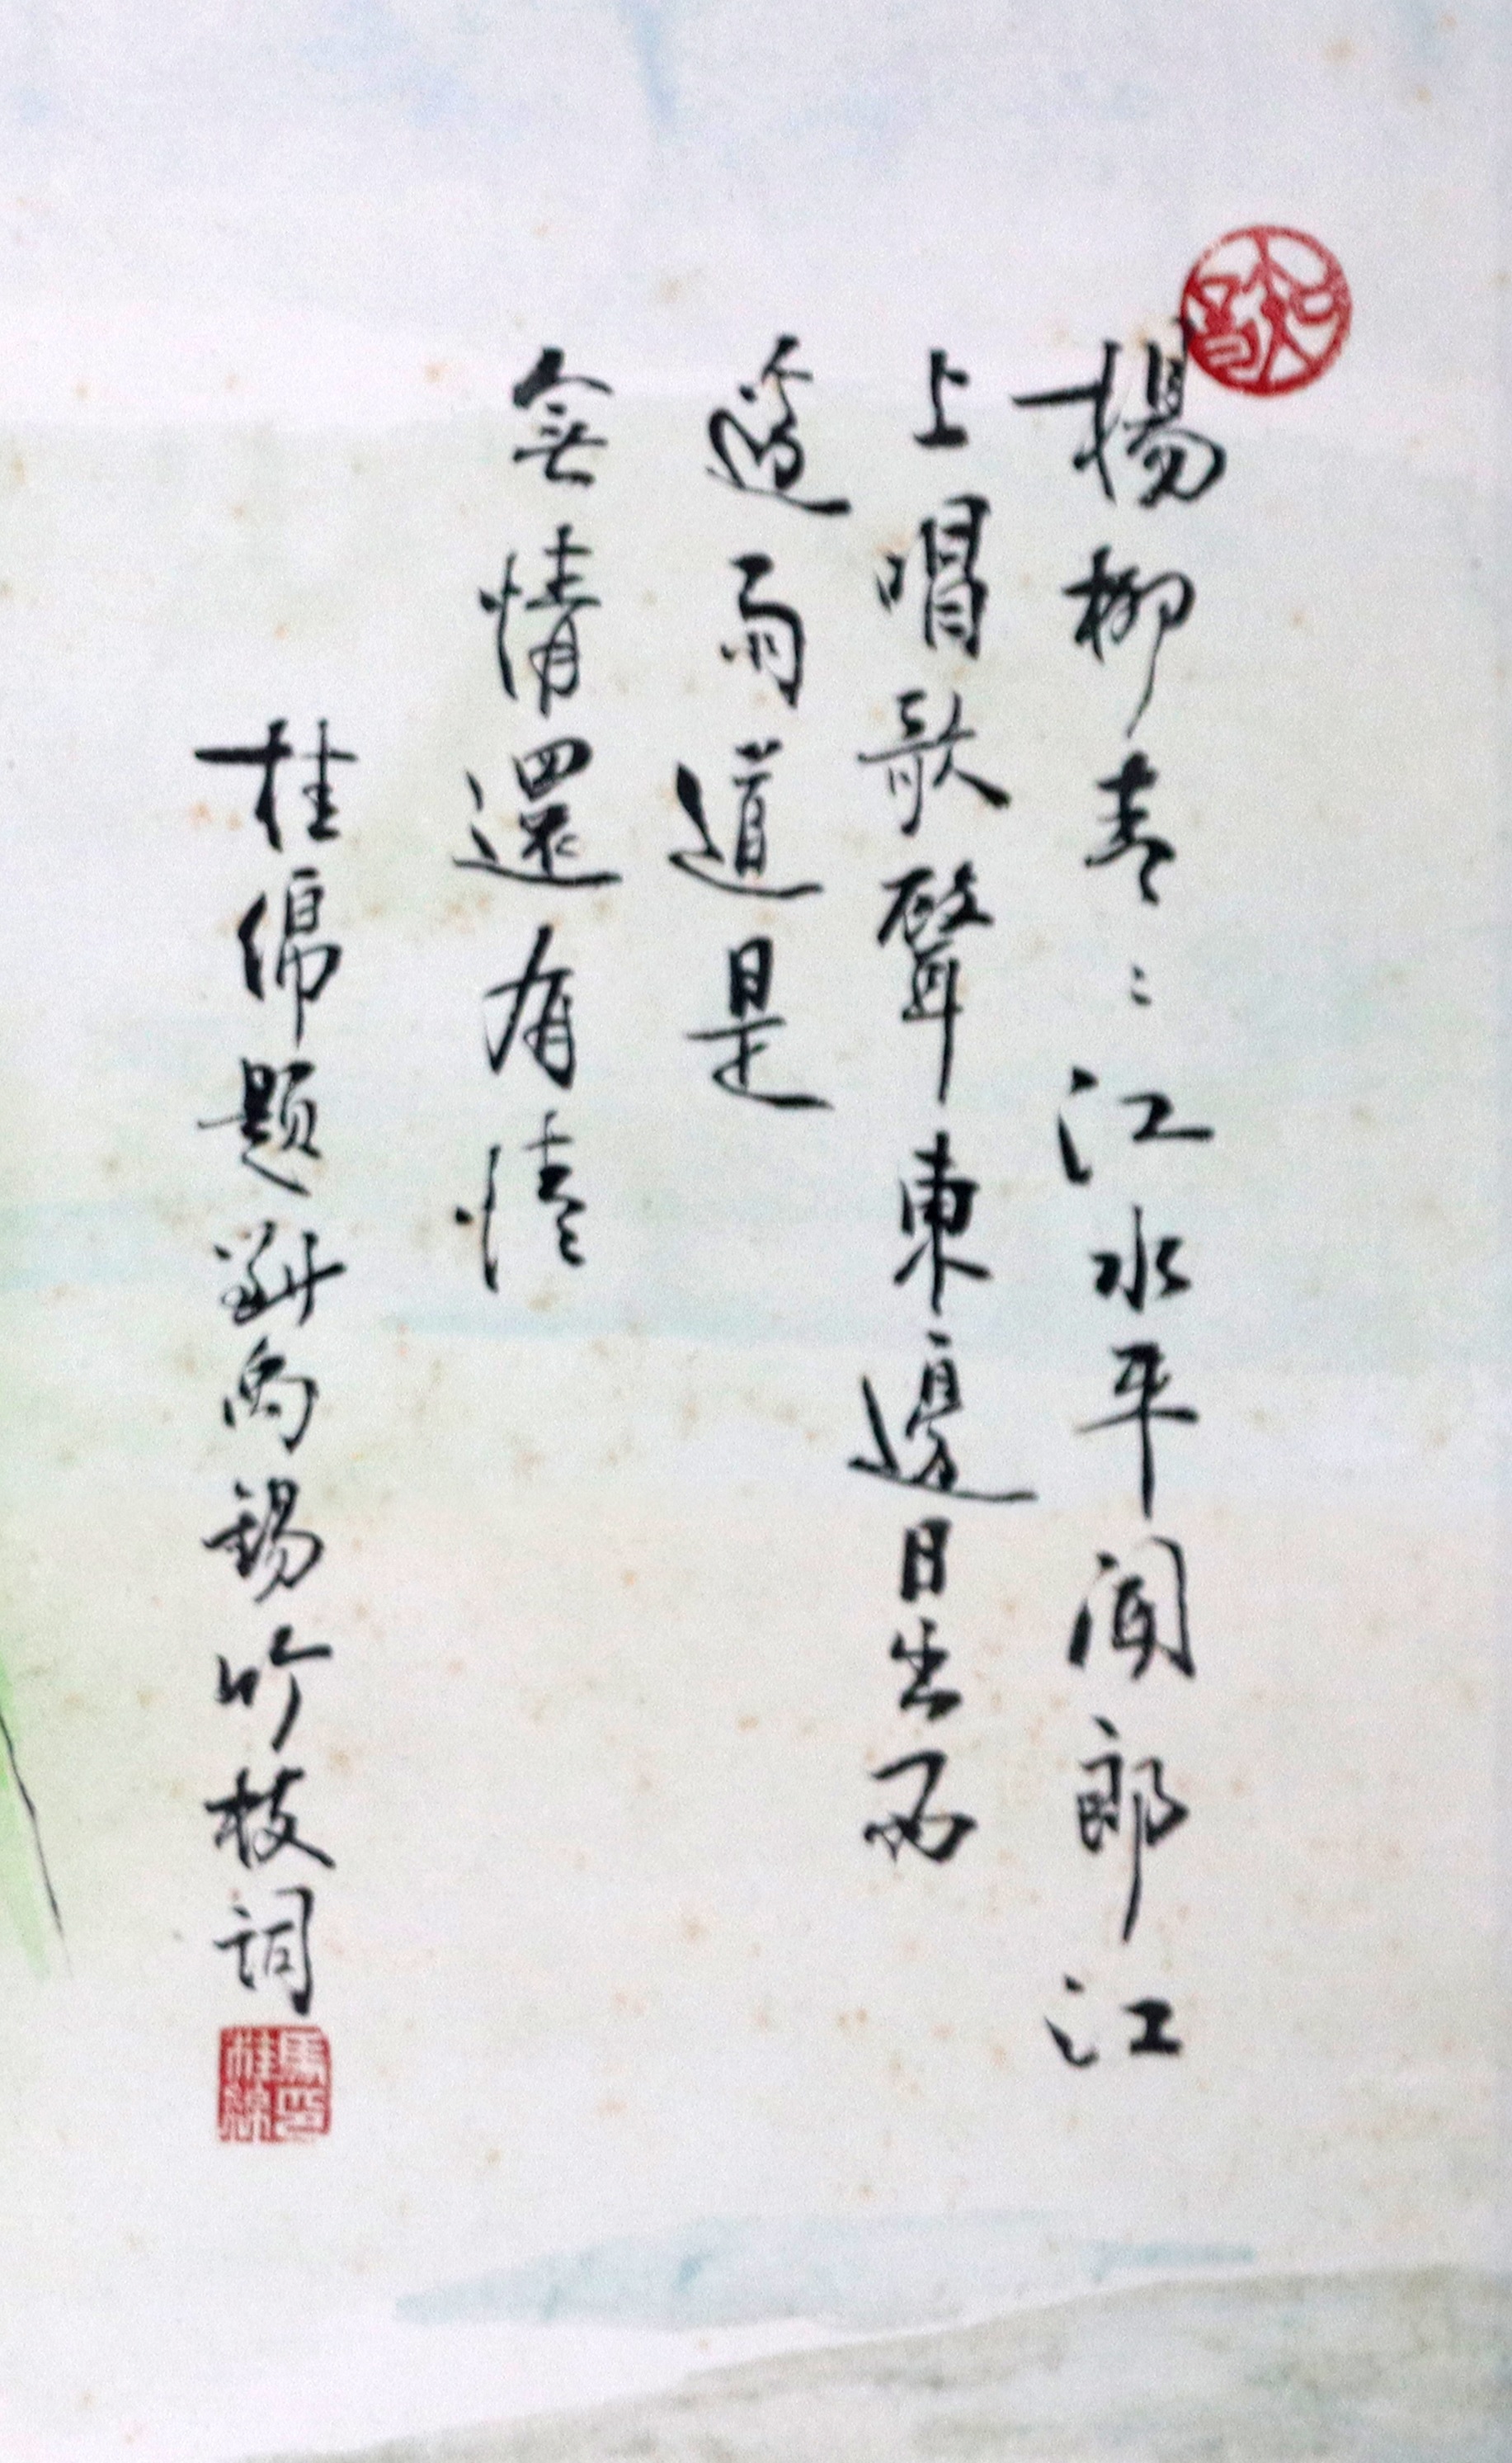 楊柳青〻江水平聞郎江
上唱歌聲東邊日出西
邊雨道是
無情還有情
桂綿題劉禹錫竹枝詞
馬印
桂綿